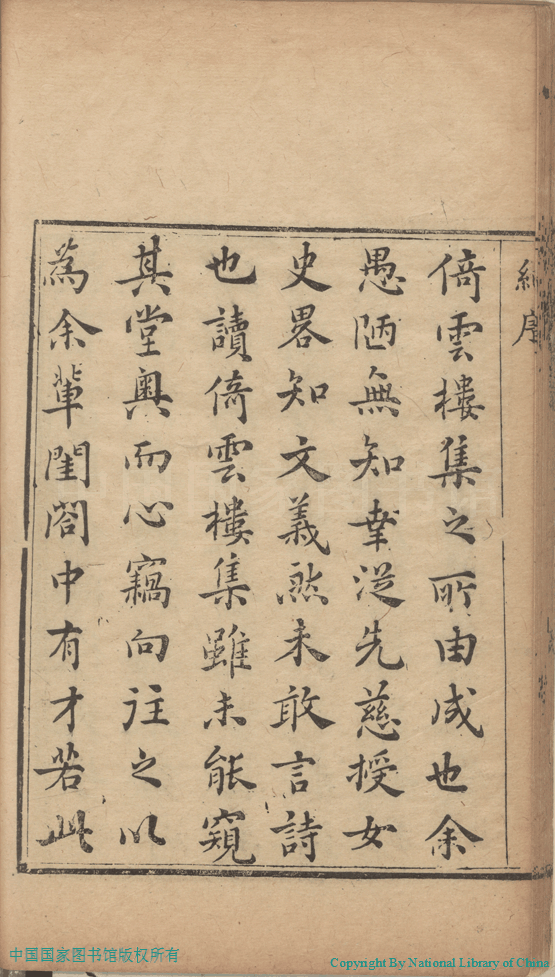 序
倚雲樓集之所由成也余
愚陋無知幸從先慈授女
史畧知文義然未敢言詩
也讀倚雲樓集雖未能窺
其堂奧而心竊向往之以
為余輩閨閤中有才若此
中国国家图书馆版权所有
Copyright By National Library of China